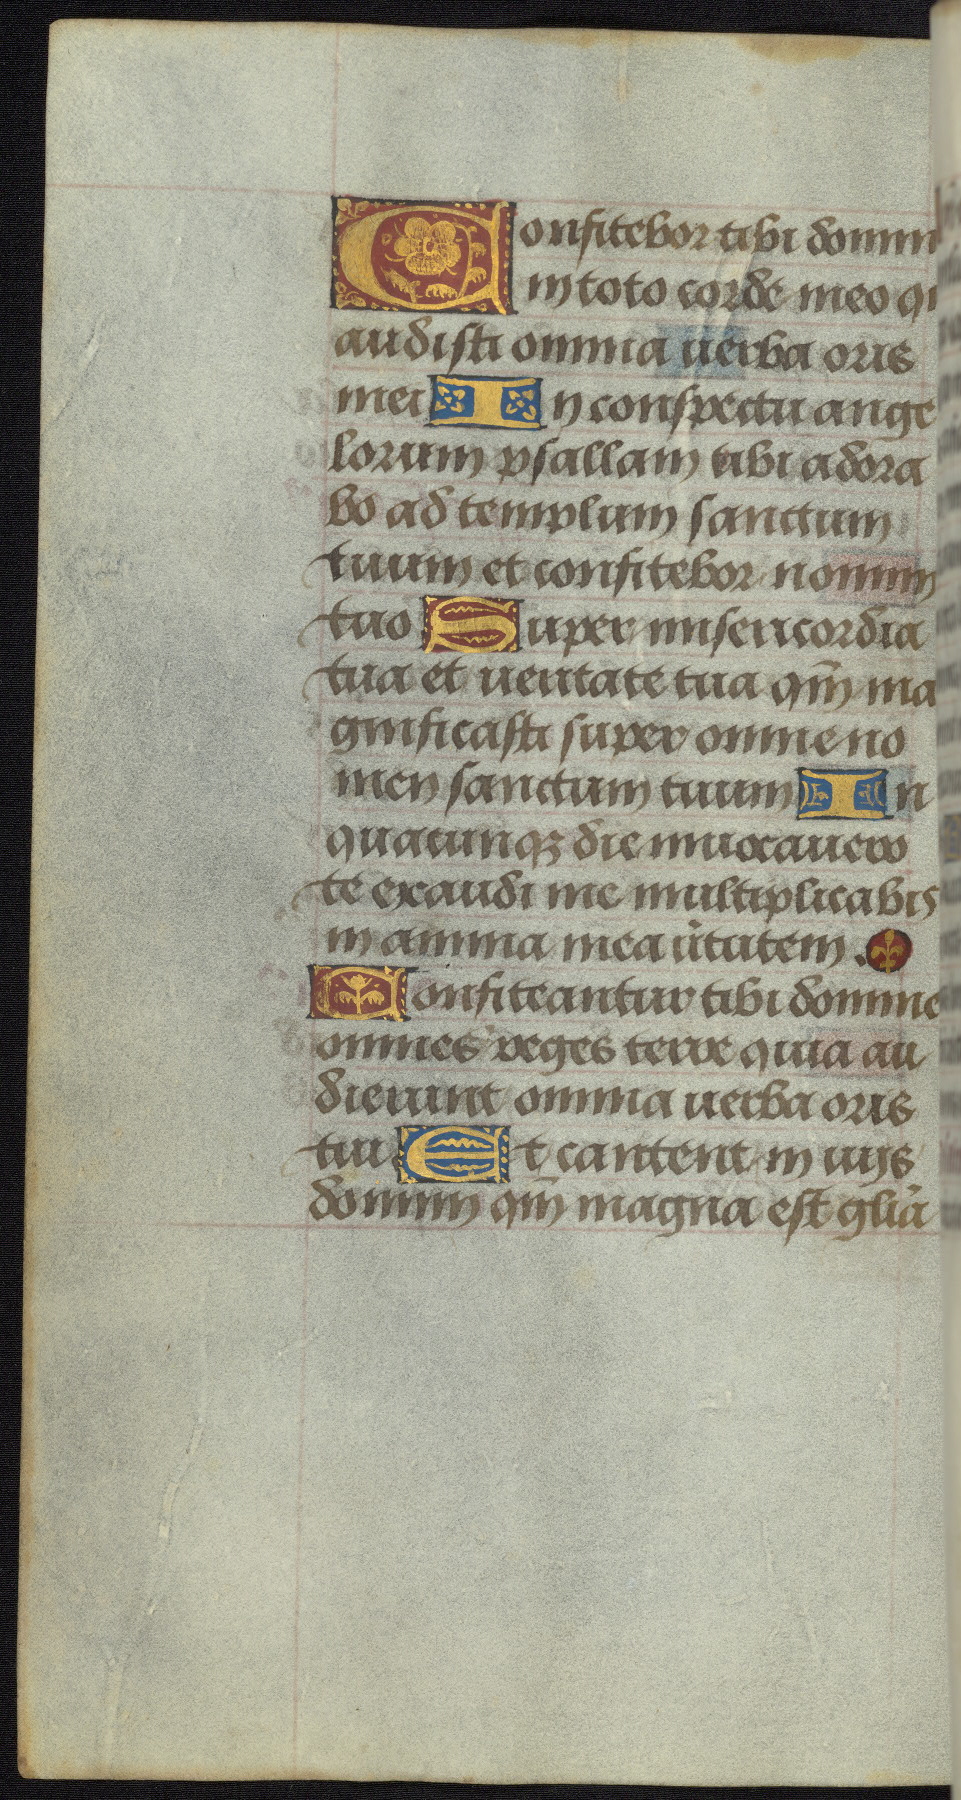 Confitebor tibi domin
in toto corde meo qm
audisti omnia uerba oris
mei In conspectu ange
lorum psallam tibi adora
bo ad templum sanctum
tuum et confitebor nomini
tuo Super misericordia
tua et ueritate tua qm̄ ma
gnificasti super omne no
men sanctum tuum In
quacunqꝫ die inuocauero
te exaudi me multiplicabis
in anima mea uͥtutem .
Confiteantur tibi domine
omnes reges terre quia au
dierunt omnia uerba oris
tui Et cantent in uijs
domini qm̄ magna est gliā